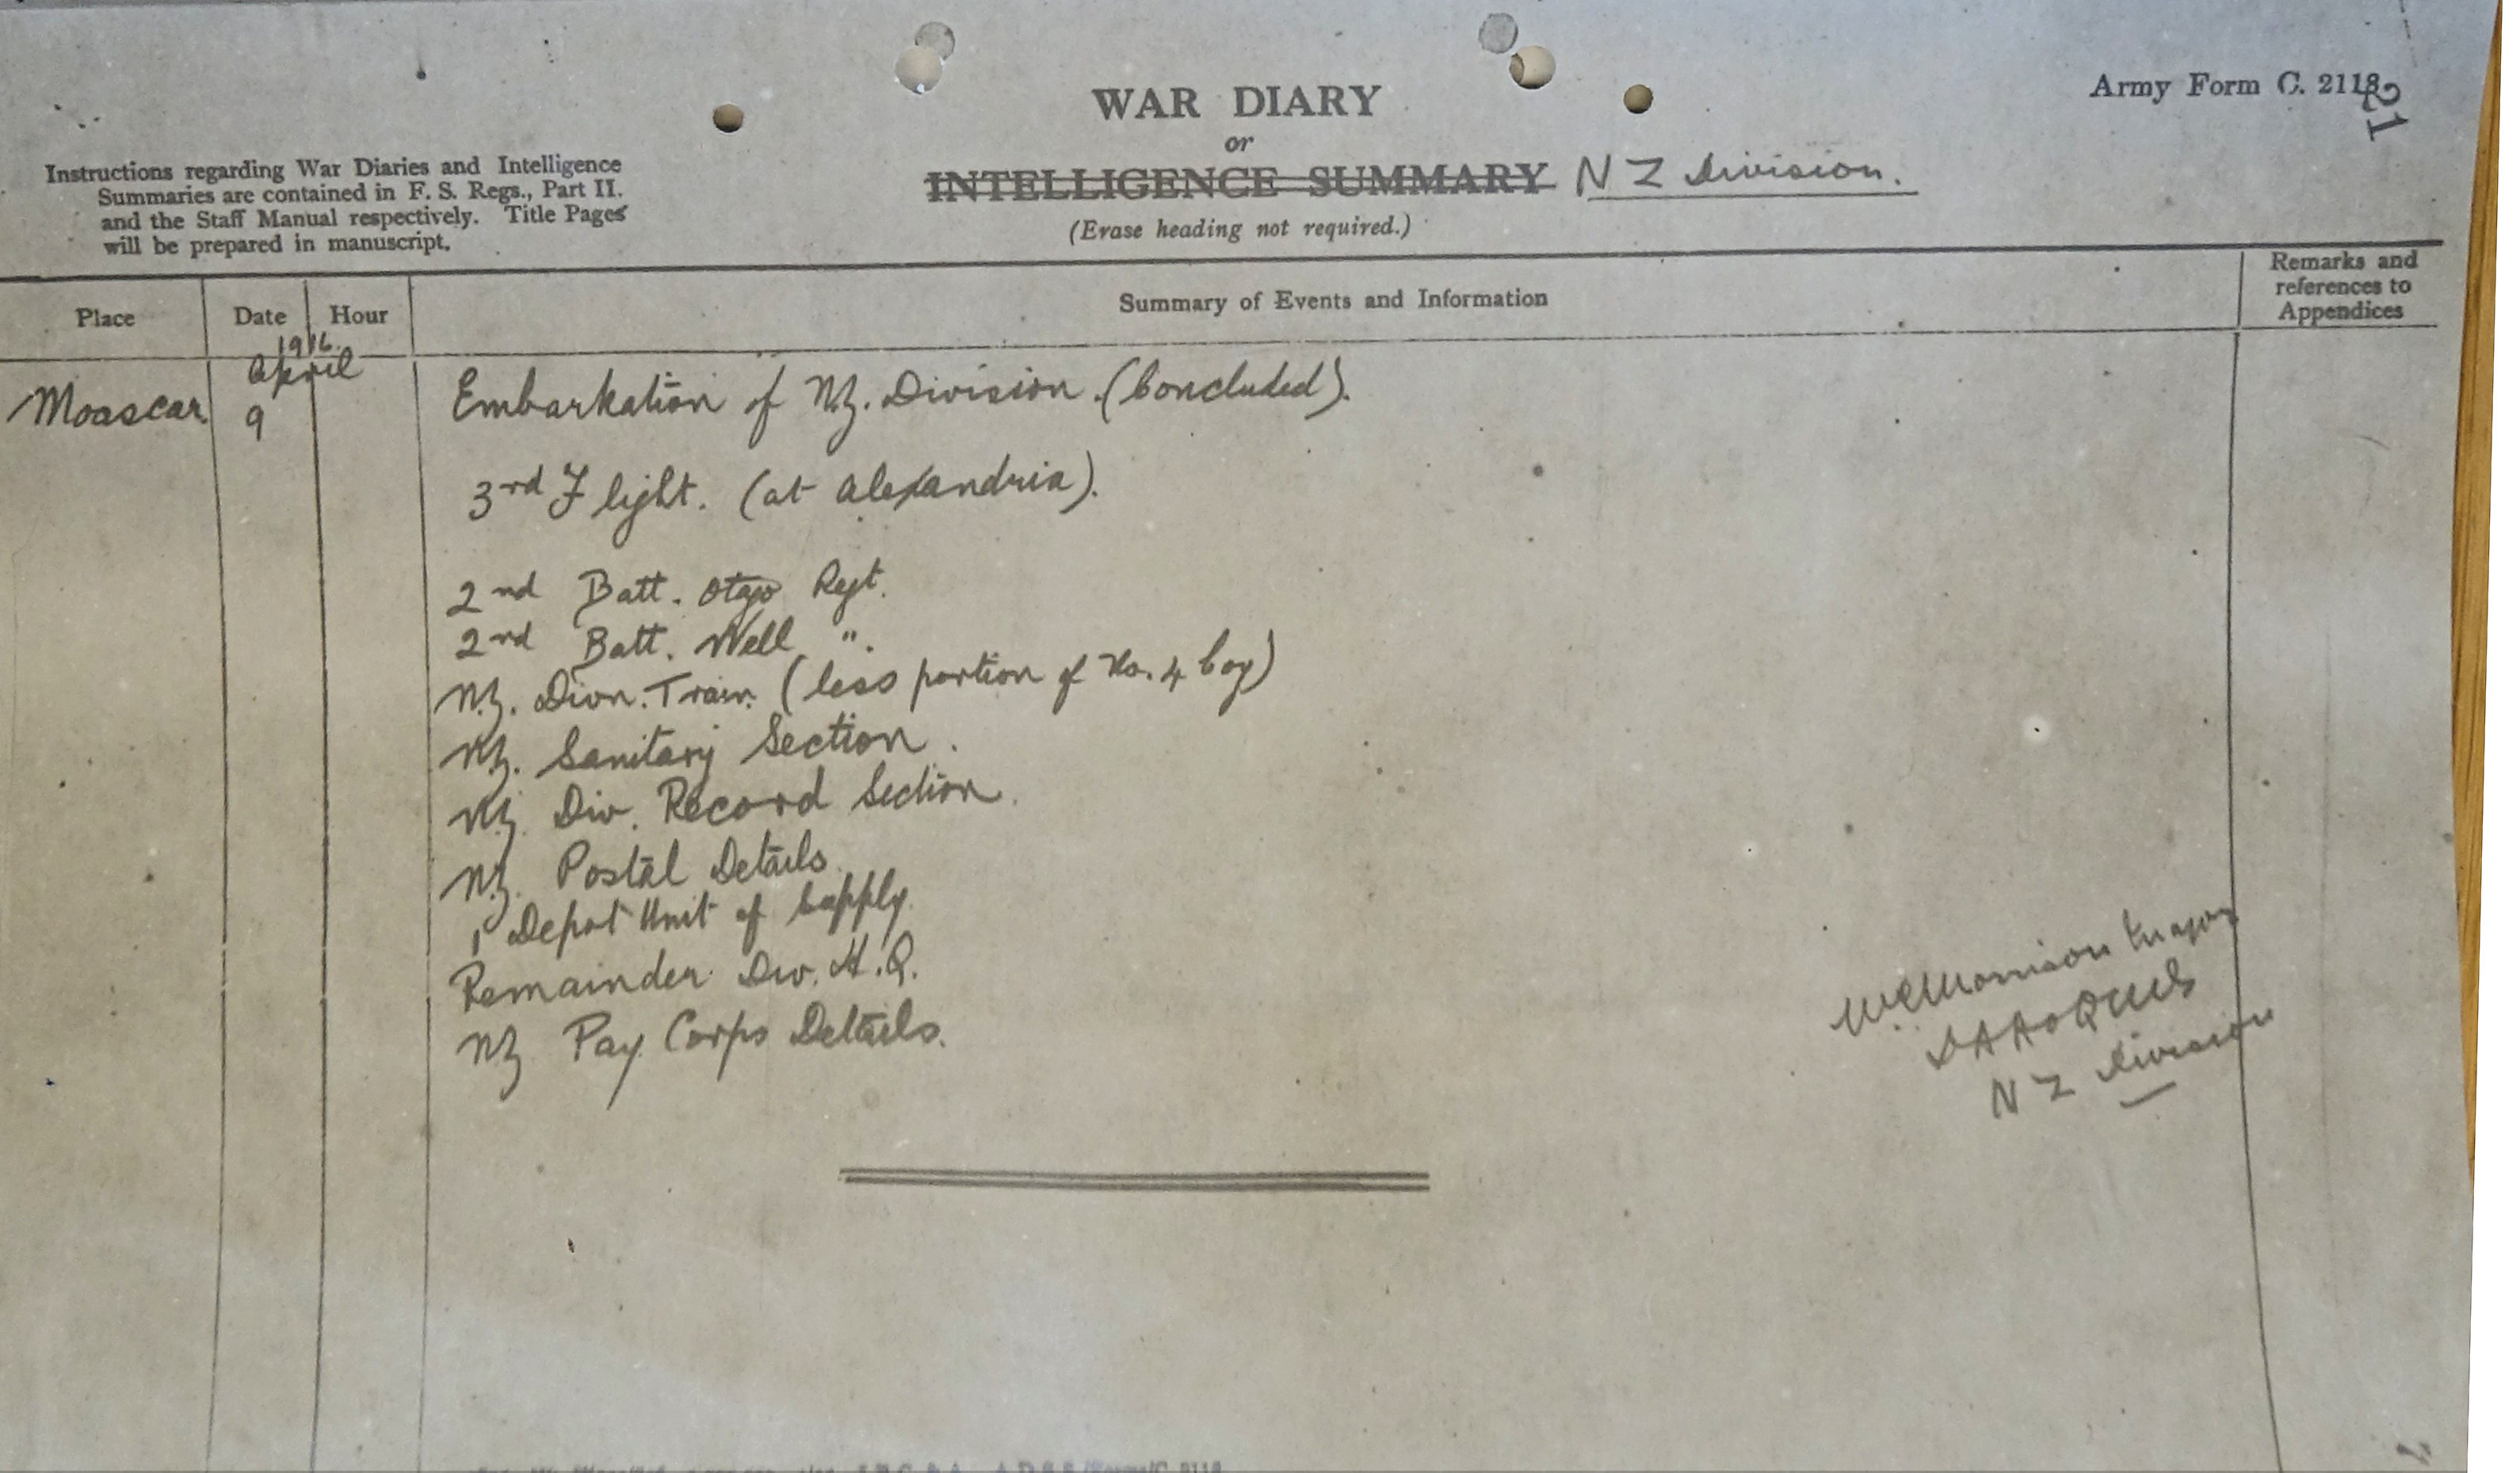 Army Form C. 2118
21
WAR DIARY
or
INTELLIGENCE SUMMARY NZ Division.
(Erase heading not required.)
Instructions regarding War Diaries and Intelligence
Summaries are contained in F. S. Regs., Part II.
and the Staff Manual respectively. Title Pages
will be prepared in manuscript.
Place Date Hour Summary of Events and Information Remarks and
references to
Appendices
1916.
April
Moascar 9 Embarkation of N.Z. Division. (Concluded).
3rd Flight. (at Alexandria).
2nd Batt. Otago Regt.
2nd Batt. Well ".
N.Z. Divn. Train. (less portion of No. 4 Coy)
N.Z. Sanitary Section.
N.Z. Div. Record Section.
N.Z. Postal Details
1 Depot Unit of Supply.
Remainder Div. H.Q.
NZ Pay Corps Details.
Morrison Major
DAA&QMG
NZ Division